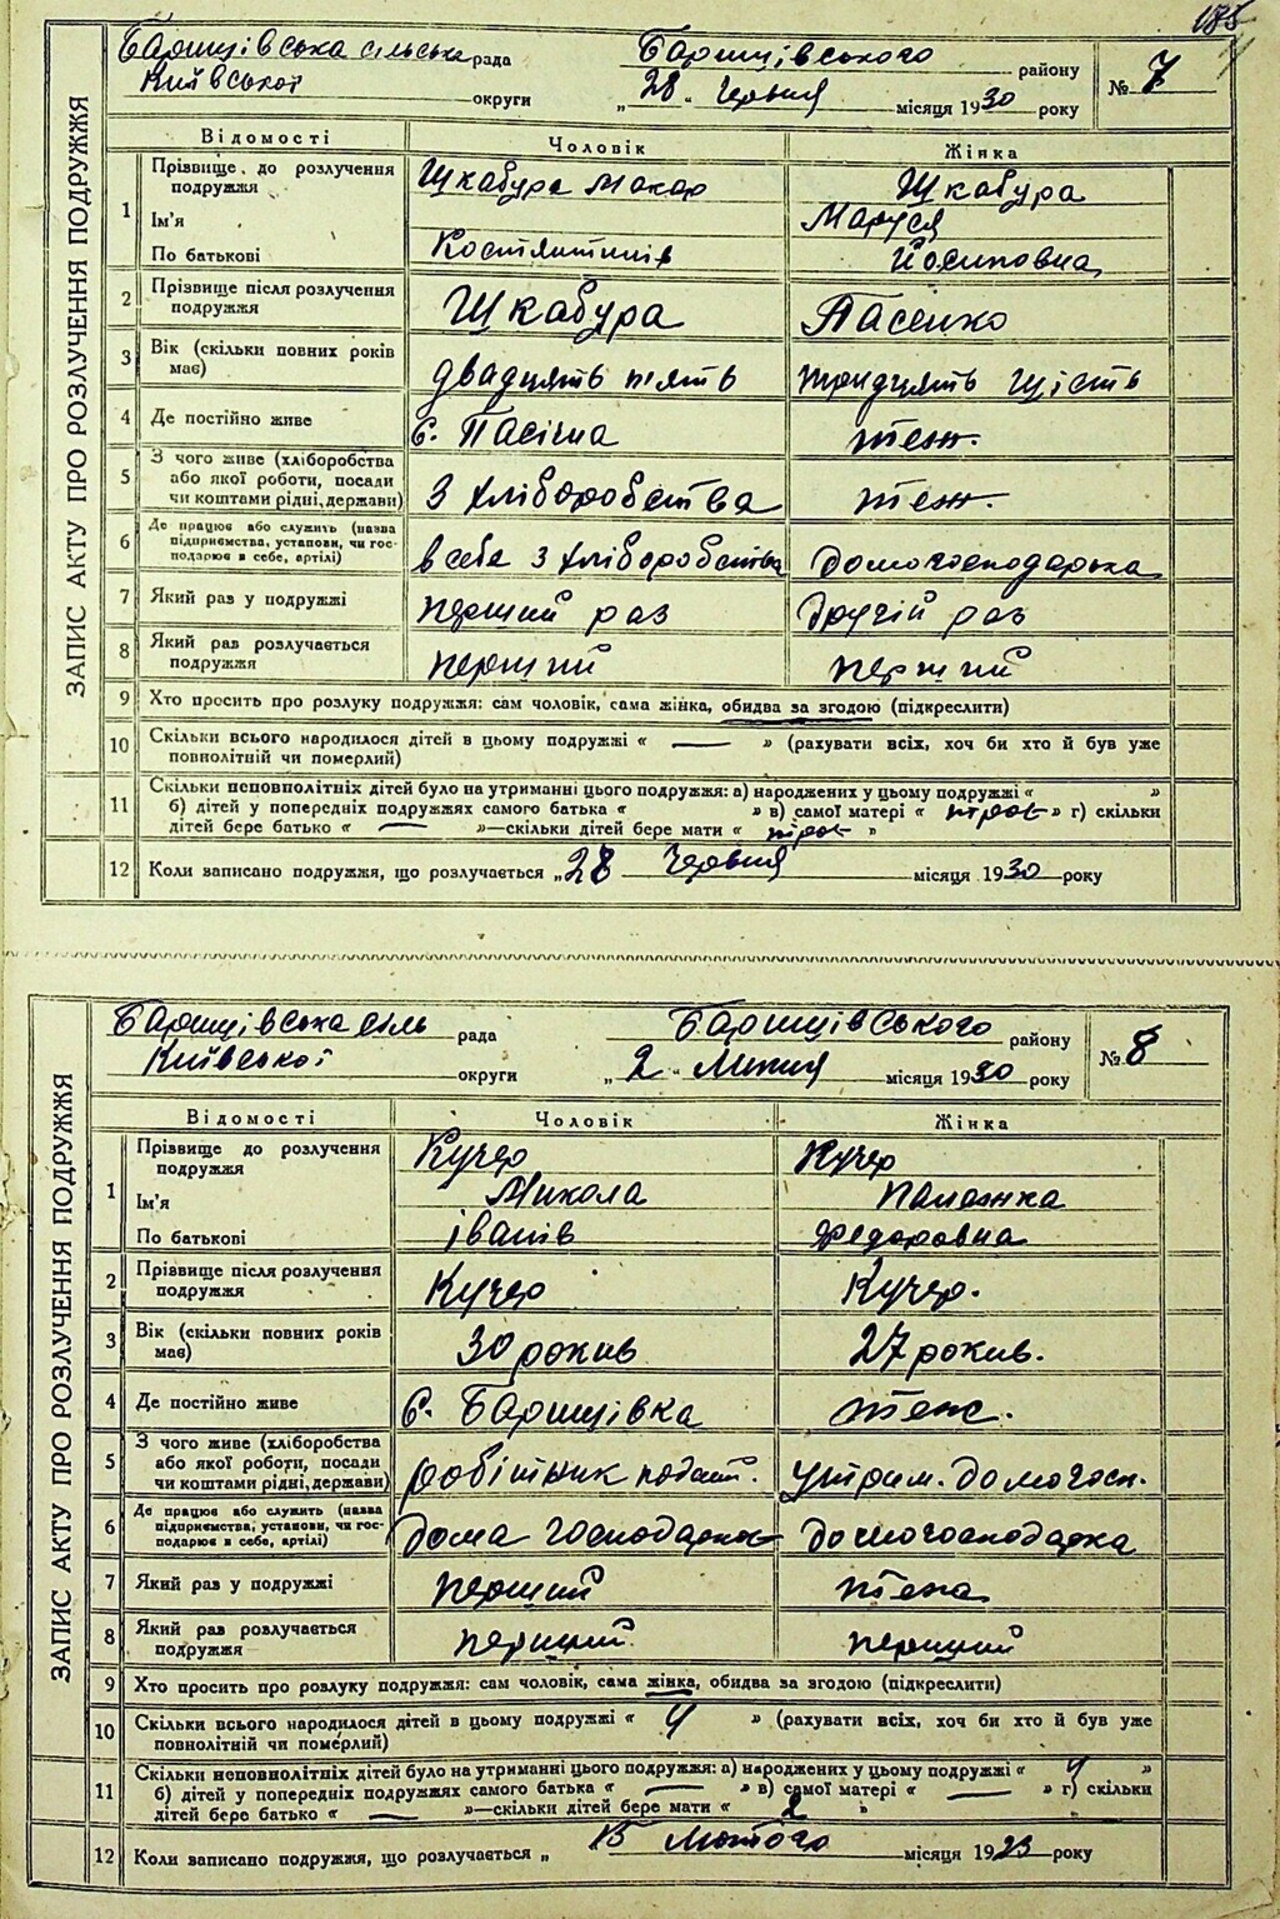 185
ЗАПИС АКТУ ПРО РОЗЛУЧЕННЯ ПОДРУЖЖЯ
Баришівська сільська рада Баришівського району № 7
Київської округи „ 28 “ Червня місяця 1930 року
Відомості Чоловік Жінка
1 Прізвище до розлучення подружжя Шкабура Макар Шкабура
Ім'я Маруся
По батькові Костянтинів Йосиповна
2 Прізвище після розлучення подружжя Шкабура Пасенко
3 Вік (скільки повних років має) двадцять пять тридцять шість
4 Де постійно живе С. Пасічна теж.
5 З чого живе (хліборобства або якої роботи, посади чи коштами рідні, держави) З хліборобства теж.
6 Де працює або служить (назва підприємства, установи, чи господарює в себе, артілі) в себе з хліборобства домогосподарька
7 Який раз у подружжі перший раз другій раз
8 Який раз розлучається подружжя перший перший
9 Хто просить про розлуку подружжя: сам чоловік, сама жінка, обидва за згодою (підкреслити)
10 Скільки всього народилося дітей в цьому подружжі « — » (рахувати всіх, хоч би хто й був уже
повнолітній чи померлий)
11 Скільки неповнолітніх дітей було на утриманні цього подружжя: а) народжених у цьому подружжі « »
б) дітей у попередніх подружжях самого батька « » в) самої матері « » г) скільки
дітей бере батько « — »—скільки дітей бере мати « »
12 Коли записано подружжя, що розлучається „28 Червня місяця 1930 року
ЗАПИС АКТУ ПРО РОЗЛУЧЕННЯ ПОДРУЖЖЯ
Баришівська сіль рада Баришівського району № 8
Київської округи „ 2 “ Липня місяця 1930 року
Відомості Чоловік Жінка
1 Прізвище до розлучення подружжя Кучер Кучер
Ім'я Микола Палажка
По батькові Іванів Федоровна
2 Прізвище після розлучення подружжя Кучер Кучер.
3 Вік (скільки повних років має) 30 рокив 27 рокив.
4 Де постійно живе С. Баришівка теж.
5 З чого живе (хліборобства або якої роботи, посади чи коштами рідні, держави) робітник утрим. домогосп.
6 Де працює або служить (назва підприємства, установи, чи господарює в себе, артілі) дома домогосподарка
7 Який раз у подружжі перший
8 Який раз розлучається подружжя перший перший
9 Хто просить про розлуку подружжя: сам чоловік, сама жінка, обидва за згодою (підкреслити)
10 Скільки всього народилося дітей в цьому подружжі « 4 » (рахувати всіх, хоч би хто й був уже
повнолітній чи померлий)
11 Скільки неповнолітніх дітей було на утриманні цього подружжя: а) народжених у цьому подружжі « 4 »
б) дітей у попередніх подружжях самого батька « — » в) самої матері « — » г) скільки
дітей бере батько « — »—скільки дітей бере мати « 2 »
12 Коли записано подружжя, що розлучається „ 15 Лютого місяця 1923 року